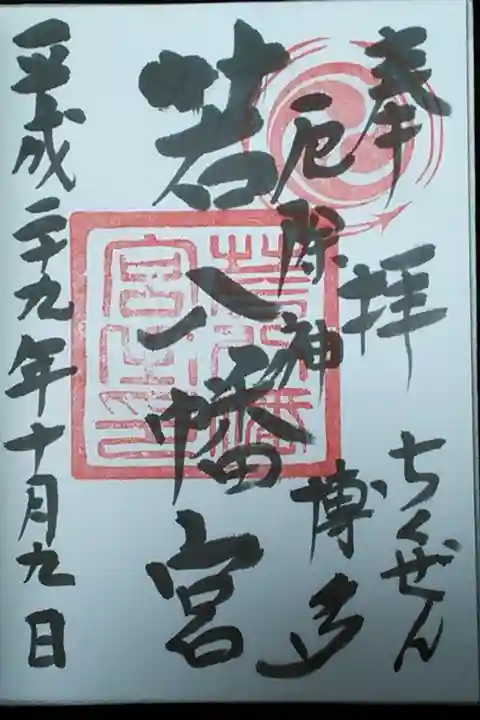 奉拝
ちくぜん
厄除神
博多
若八幡宮
平成二十九年十月九日
若八幡
宮之印